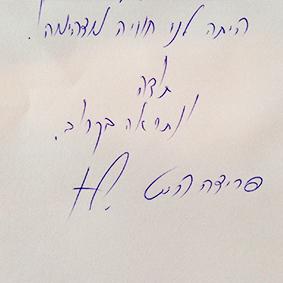 היתה לנו חוויה מדהימה!
תודה
ונתראה בקרוב.
פרידה